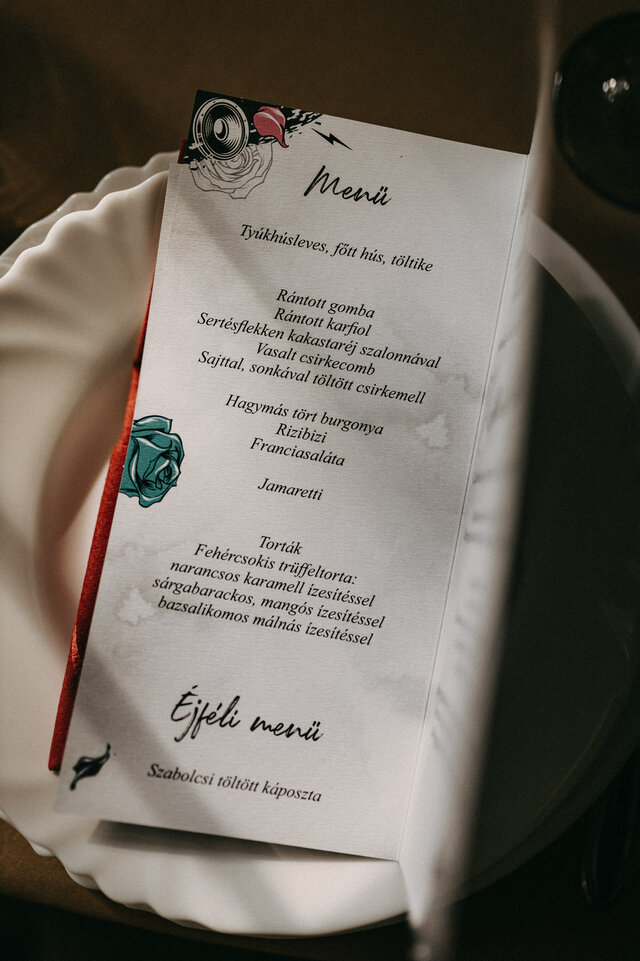 Menü
Tyúkhúsleves, főtt hús, töltike
Rántott gomba
Rántott karfiol
Sertésflekken kakastaréj szalonnával
Vasalt csirkecomb
Sajttal, sonkával töltött csirkemell
Hagymás tört burgonya
Rizibizi
Franciasaláta
Jamaretti
Torták
Fehércsokis trüffeltorta:
narancsos karamell ízesítéssel
sárgabarackos, mangós ízesítéssel
bazsalikomos málnás ízesítéssel
Éjféli menü
Szabolcsi töltött káposzta